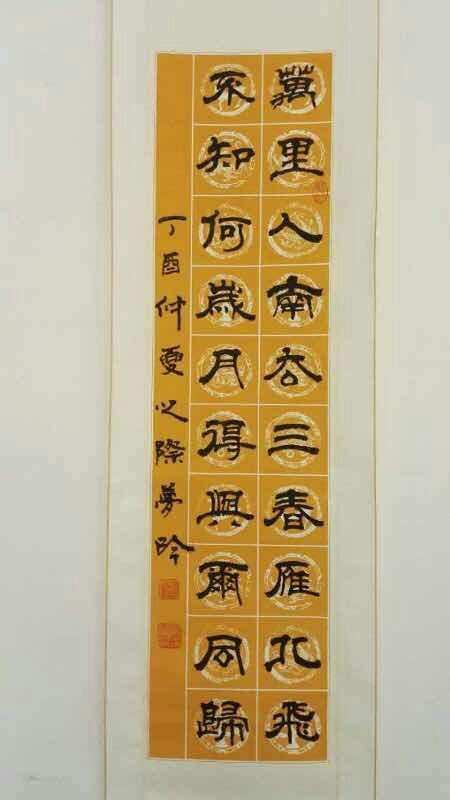 萬里人南去三春雁北飛
不知何歲月得與爾同歸
丁酉仲夏之際夢吟